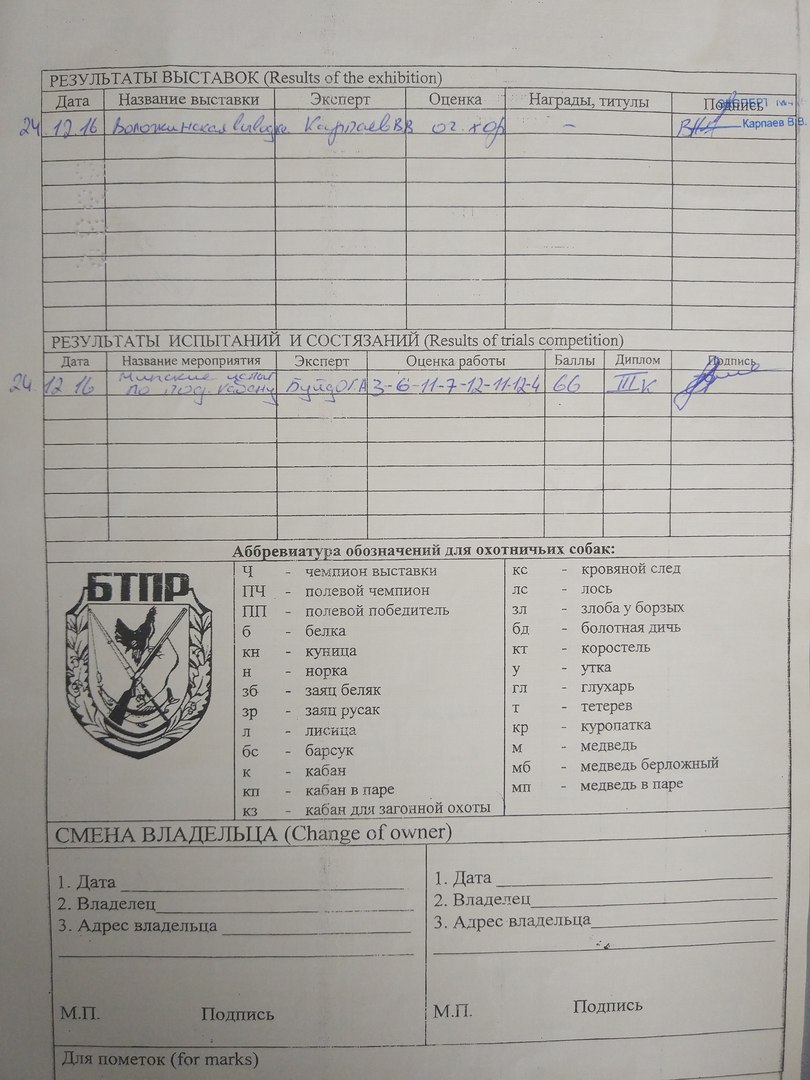 РЕЗУЛЬТАТЫ ВЫСТАВОК (Results of the exhibition)
Дата Название выставки Эксперт Оценка Награды, титулы Подпись
ЭКСПЕРТ
24.12.16 Воложинская выводка Карпаев ВВ оч. хор – Карпаев В.В.
РЕЗУЛЬТАТЫ ИСПЫТАНИЙ И СОСТЯЗАНИЙ (Results of trials competition)
Дата Название мероприятия Эксперт Оценка работы Баллы Диплом Подпись
Минские
24.12 16 по под. кабану 3-6-11-7-12-11-12-4 66 III к
Аббревиатура обозначений для охотничьих собак:
БТПР
Ч - чемпион выставки
ПЧ - полевой чемпион
ПП - полевой победитель
б - белка
кн - куница
н - норка
зб - заяц беляк
зр - заяц русак
л - лисица
бс - барсук
к - кабан
кп - кабан в паре
кз - кабан для загонной охоты
кс - кровяной след
лс - лось
зл - злоба у борзых
бд - болотная дичь
кт - коростель
у - утка
гл - глухарь
т - тетерев
кр - куропатка
м - медведь
мб - медведь берложный
мп - медведь в паре
СМЕНА ВЛАДЕЛЬЦА (Change of owner)
1. Дата
2. Владелец
3. Адрес владельца
М.П. Подпись
1. Дата
2. Владелец
3. Адрес владельца
М.П. Подпись
Для пометок (for marks)